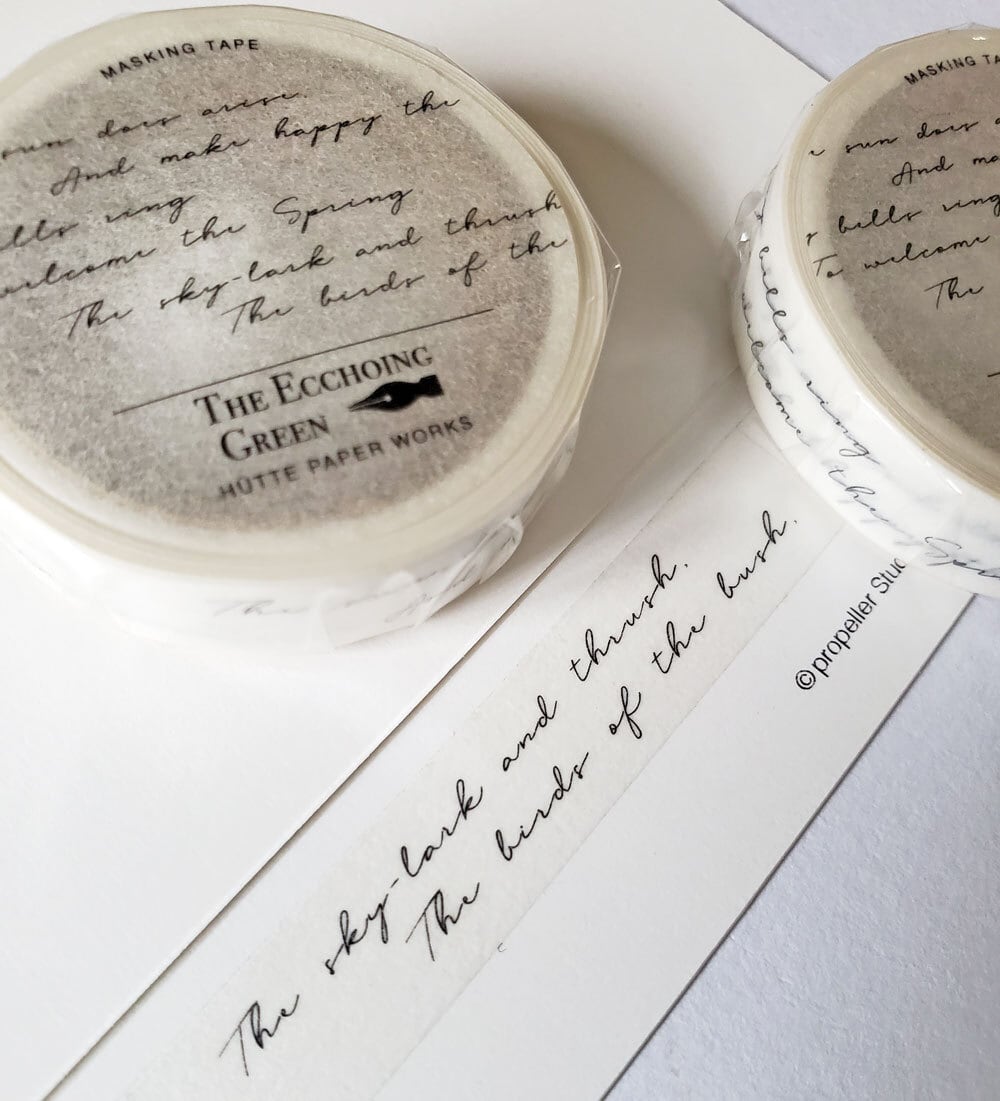 MASKING TAPE
sun does arise.
And make happy the
ells ring
welcome the Spring
The sky-lark and thrush
The birds of the
THE ECCHOING
GREEN
HÜTTE PAPER WORKS
MASKING TA
e sun does a
And ma
y bells ring
To welcome
The
bells ring
welcome the Sp
The sky-lark and thrush.
The birds of the bush.
©propeller Stud